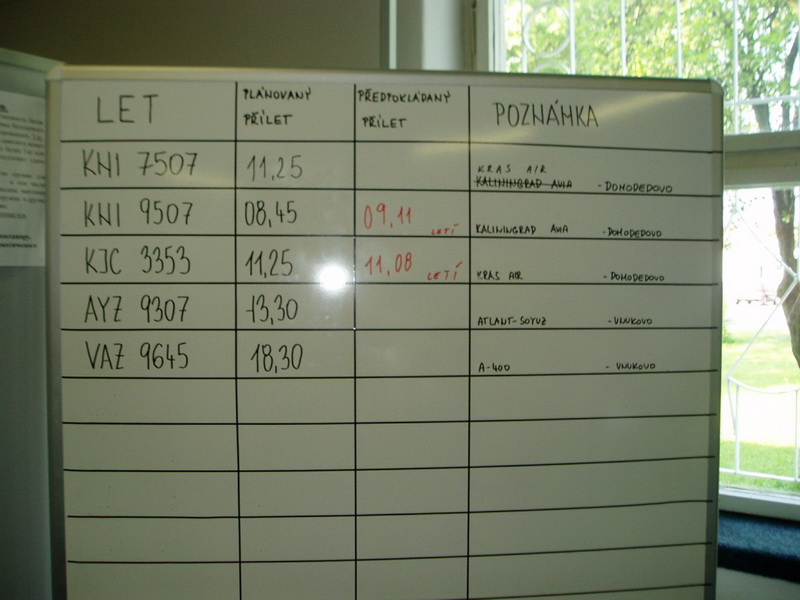 LET PLÁNOVANÝ PŘÍLET PŘEDPOKLÁDANÝ PŘÍLET POZNÁMKA
KNI 7507 11,25 KRAS AIR KALININGRAD AVIA - DOMODEDOVO
KNI 9507 08,45 09,11 LETÍ KALININGRAD AVIA - DOMODEDOVO
KJC 3353 11,25 11,08 LETÍ KRAS AIR - DOMODEDOVO
AYZ 9307 13,30 ATLANT-SOYUZ - VNUKOVO
VAZ 9645 18,30 A-400 - VNUKOVO